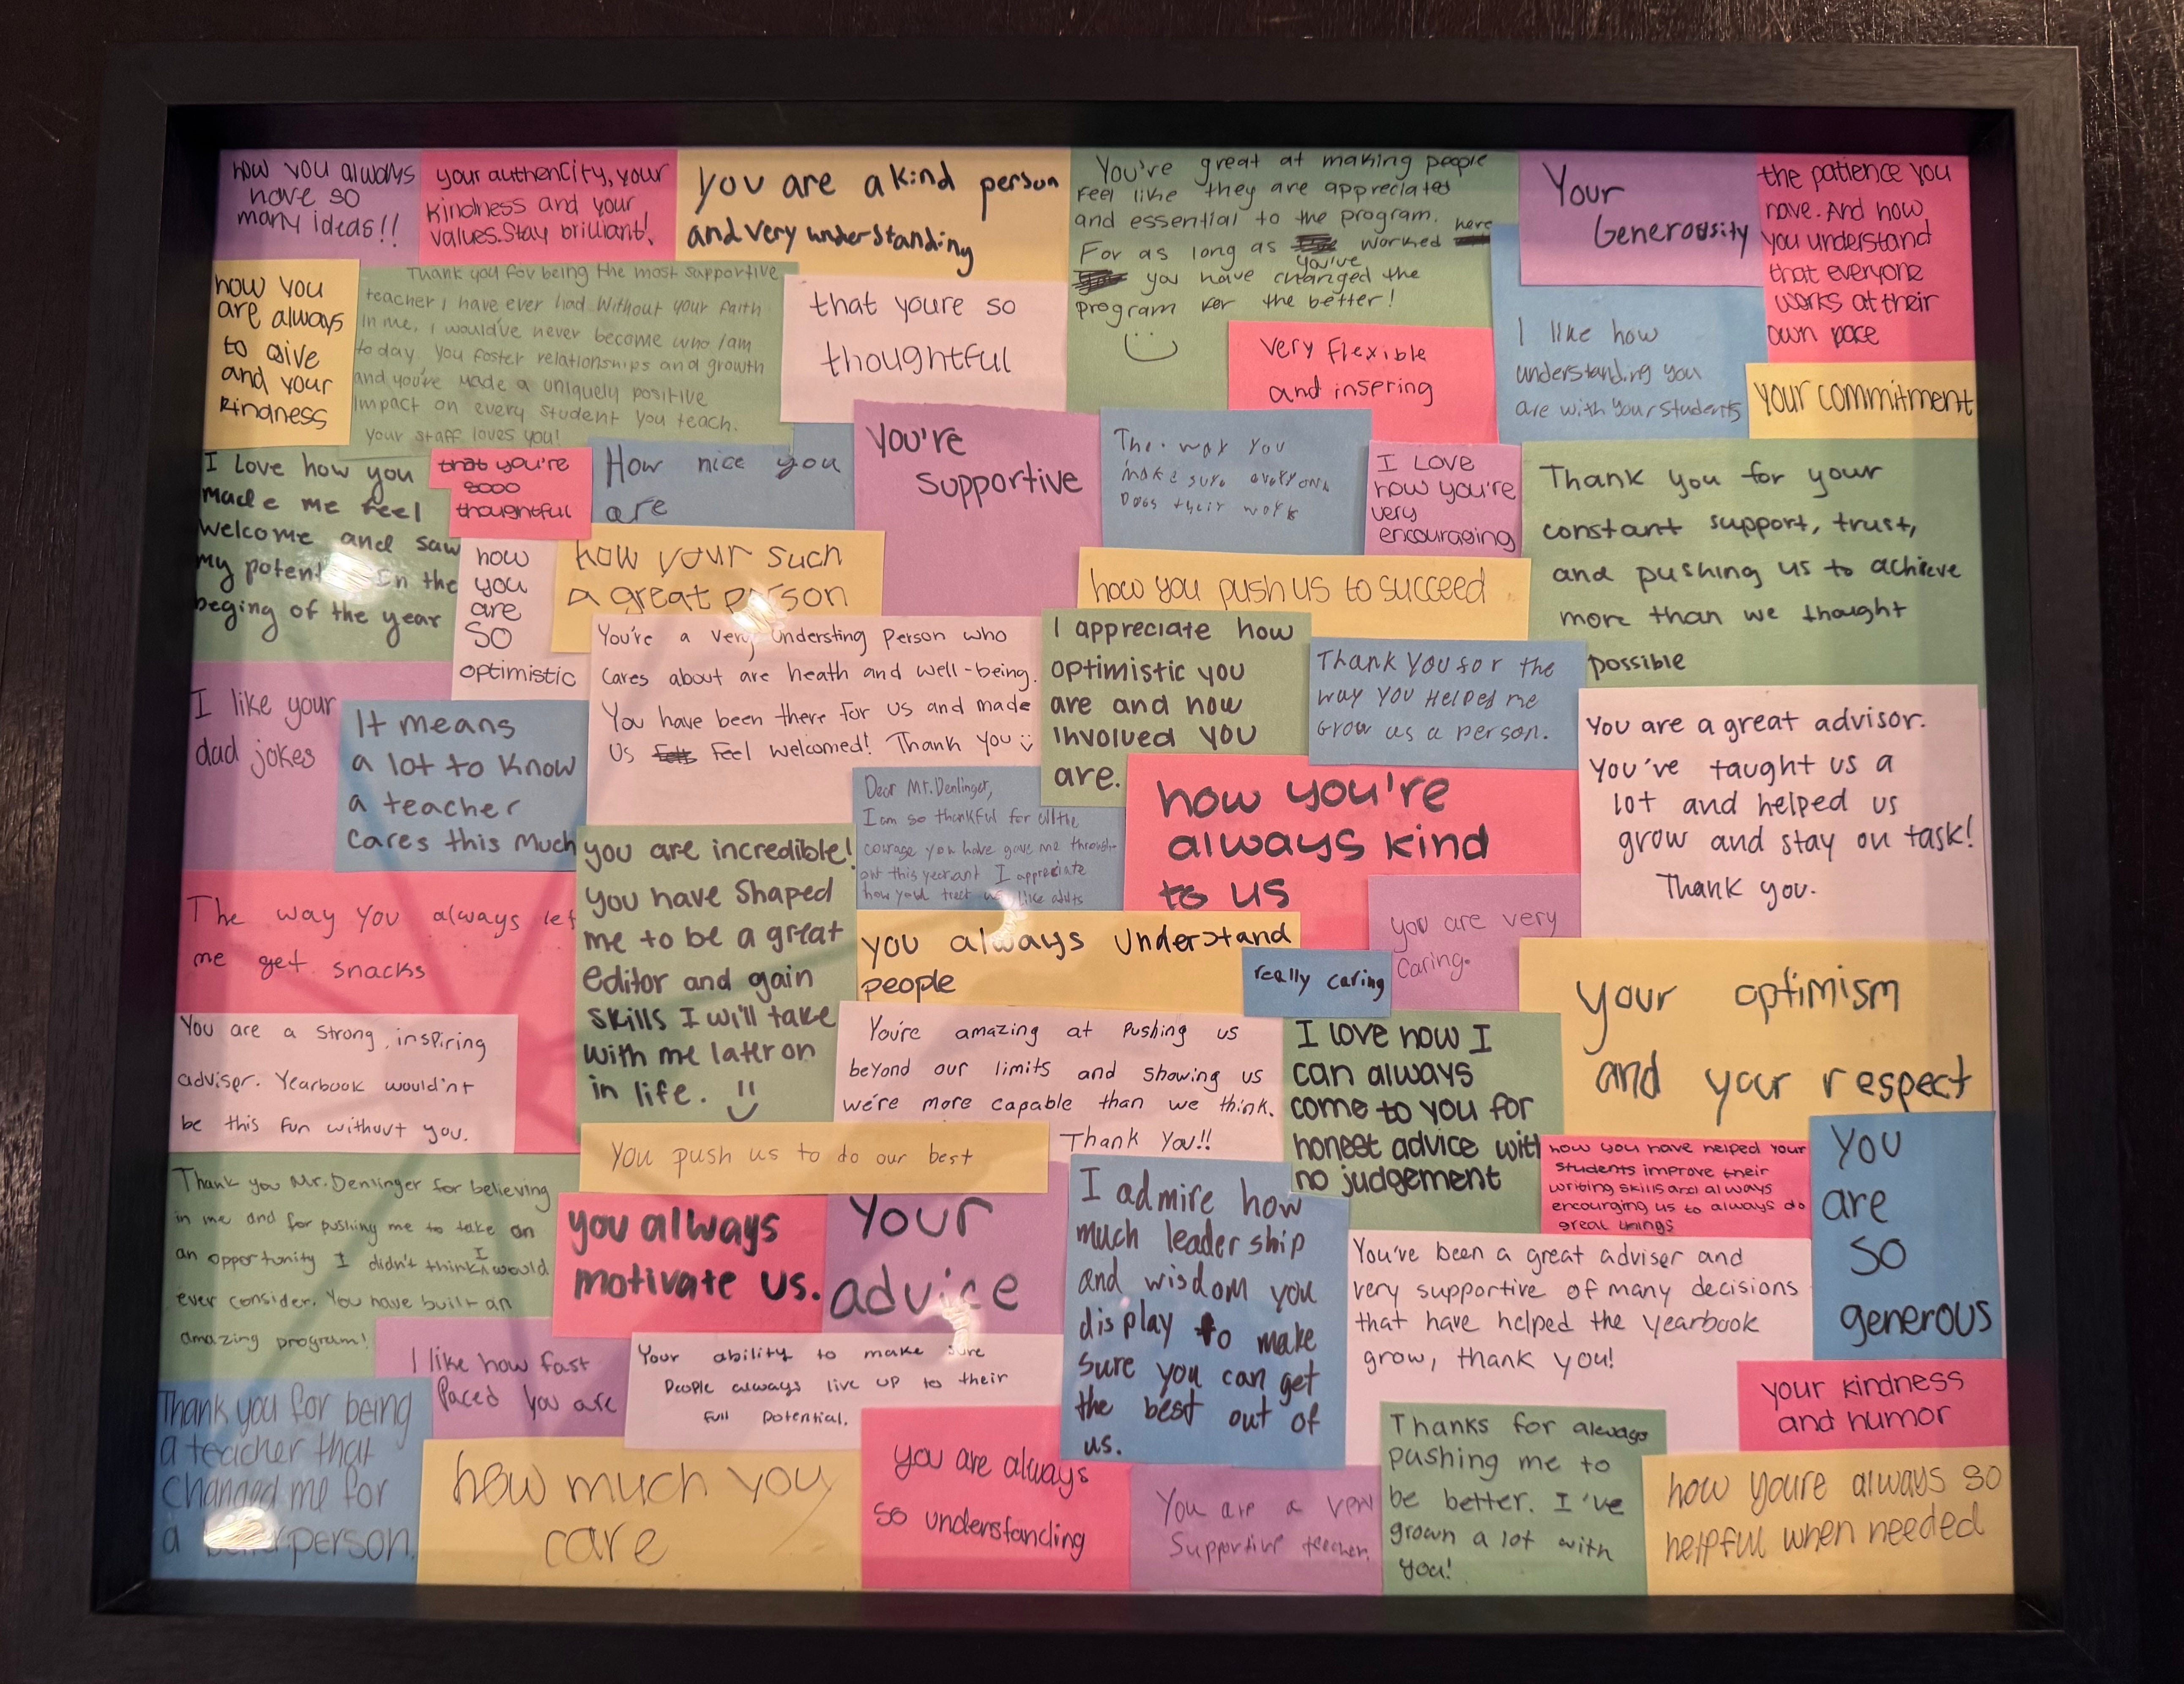 how you always
have so
many ideas!!
your authencity, your
kindness and your
values. Stay brilliant!
you are a kind person
and very understanding
You're great at making people
feel like they are appreciated
and essential to the program.
For as long as you've worked here
you have changed the
program for the better!
Your
Generousity
the patience you
have. And how
you understand
that everyone
works at their
own pace
how you
are always
to give
and your
kindness
Thank you for being the most supportive
teacher I have ever had. Without your faith
in me, I would've never become who I am
today. You foster relationships and growth
and you've made a uniquely positive
impact on every student you teach.
your staff loves you!
that youre so
thoughtful
very flexible
and insering
I like how
understanding you
are with your students
your commitment
I love how you
made me feel
welcome and saw
my potential in the
beging of the year
that you're
sooo
thoughtful
How nice you
are
You're
supportive
The way you
make sure everyone
Does their work
I LOVE
how you're
very
encouraging
Thank you for your
constant support, trust,
and pushing us to achieve
more than we thought
possible
how
you
are
so
optimistic
how your such
a great person
how you push us to succeed
You're a very understing person who
cares about are heath and well-being.
You have been there for us and made
us feel welcomed! Thank you
I appreciate how
optimistic you
are and how
involved you
are.
Thank you for the
way you Helped me
Grow as a person.
I like your
dad jokes
It means
a lot to know
a teacher
cares this much
You are a great advisor.
You've taught us a
lot and helped us
grow and stay on task!
Thank you.
Dear Mr. Denlinger,
I am so thankful for all the
courage you have gave me through-
out this year and I appreciate
how you'd treat us like adults
how you're
always kind
to us
you are incredible!
you have shaped
me to be a great
editor and gain
skills I will take
with me later on
in life.
The way you always let
me get snacks
you always understand
people
really caring
you are very
caring.
your optimism
and your respect
You are a strong, inspiring
adviser. Yearbook wouldn't
be this fun without you.
You're amazing at pushing us
beyond our limits and showing us
we're more capable than we think.
Thank You!!
I love how I
can always
come to you for
honest advice with
no judgement
You push us to do our best
how you have helped your
students improve their
writing skills and always
encourging us to always do
great things
you
are
so
generous
Thank you Mr. Denlinger for believing
in me and for pushing me to take on
an opportunity I didn't think I would
ever consider. You have built an
amazing program!
you always
motivate us.
Your
advice
I admire how
much leadership
and wisdom you
display to make
sure you can get
the best out of
us.
You've been a great adviser and
very supportive of many decisions
that have helped the yearbook
grow, thank you!
I like how fast
paced you are
Your ability to make sure
People always live up to their
full potential.
your kindness
and humor
Thank you for being
a teacher that
changed me for
a person.
how much you
care
you are always
so understanding
You are a very
supportive teacher.
Thanks for always
pushing me to
be better. I've
grown a lot with
you!
how youre always so
helpful when needed